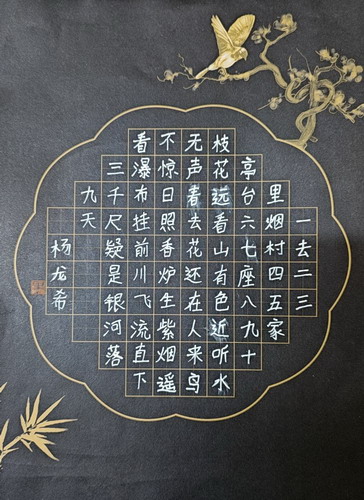 一去二三
里烟村四五家
亭台六七座八九十
枝花远看山有色近听水
无声春去花还在人来鸟
不惊日照香炉生紫烟遥
看瀑布挂前川飞流直下
三千尺疑是银河落
九天
杨龙希